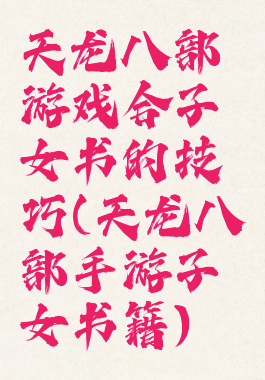 天龙八部
游戏合子
女书的技
巧(天龙八
部手游子
女书籍)